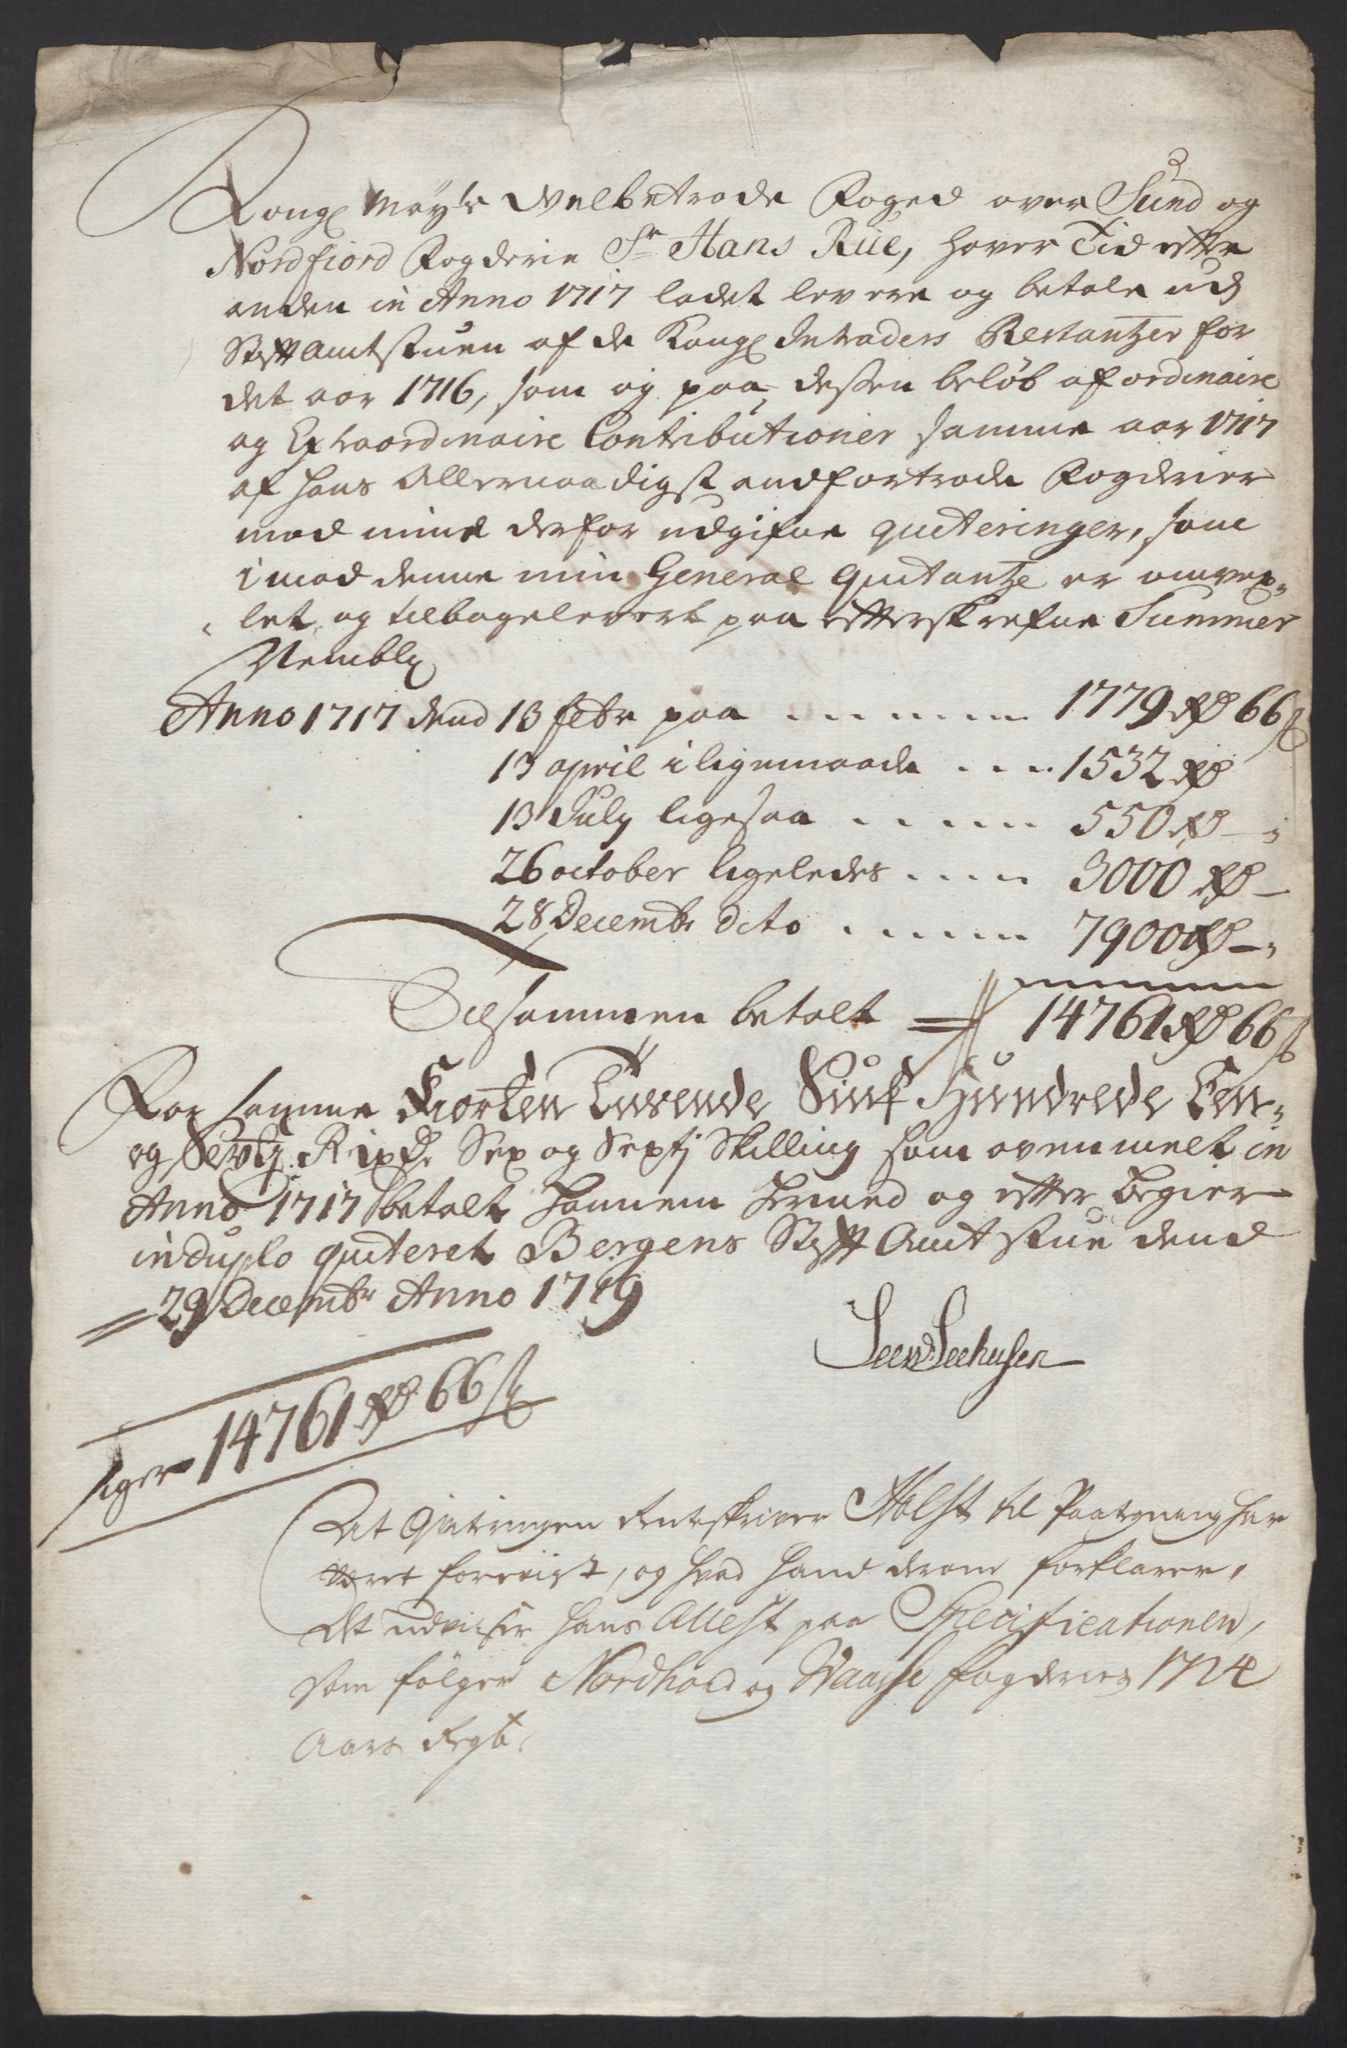 Kongl Mayts Welbetrode Foged over Sund og
Nordfiord Fogderie Sr Hans Rüe, haver Tid efter
anden in Anno 1717 ladet levere og betale udj
Stifft Amtstuen af de Kongl Intraders Restantzer for
det aar 1716, som og paa dessen beløb af ordinaire
og Extraordinaire Contributioner samme aar 1717
af hans Allernaadigst andfortrode Fogderier
mod mine derfor udgifne quiteringer, som
imod denne min General quitantze er omvex-
let, og tilbageleveret paa efterskrefne Summer
Nemblig
Anno 1717 dend 13 febr paa 1779 Rd 66 s
13 april i ligemaade 1532 Rd
13 July ligesaa 550 Rd -
26 october ligeledes 3000 Rd -
28 Decembr dito 7900 Rd -
Tilsammen betalt 14761 Rd 66 s
For samme Fiorten Tusende Siuf Hundrede Een-
og Sextj Rixdr Sex og Sextj Skilling som ovenmelt in
Anno 1717 betalt hannem hermed og efter begier
in duplo quiteret Bergens Stifft Amtstue dend
29 Decembr Anno 1719
Seehusen
siger 14761 Rd 66 s
At Qviteringen Renteskriver Holst til Paategning har
veret foreviist, og hvad hand derom forklarer,
det udviser hans Attest paa Specificationen,
som følger Nordhord og Waasse fogderies 1714
Aars Regsk.